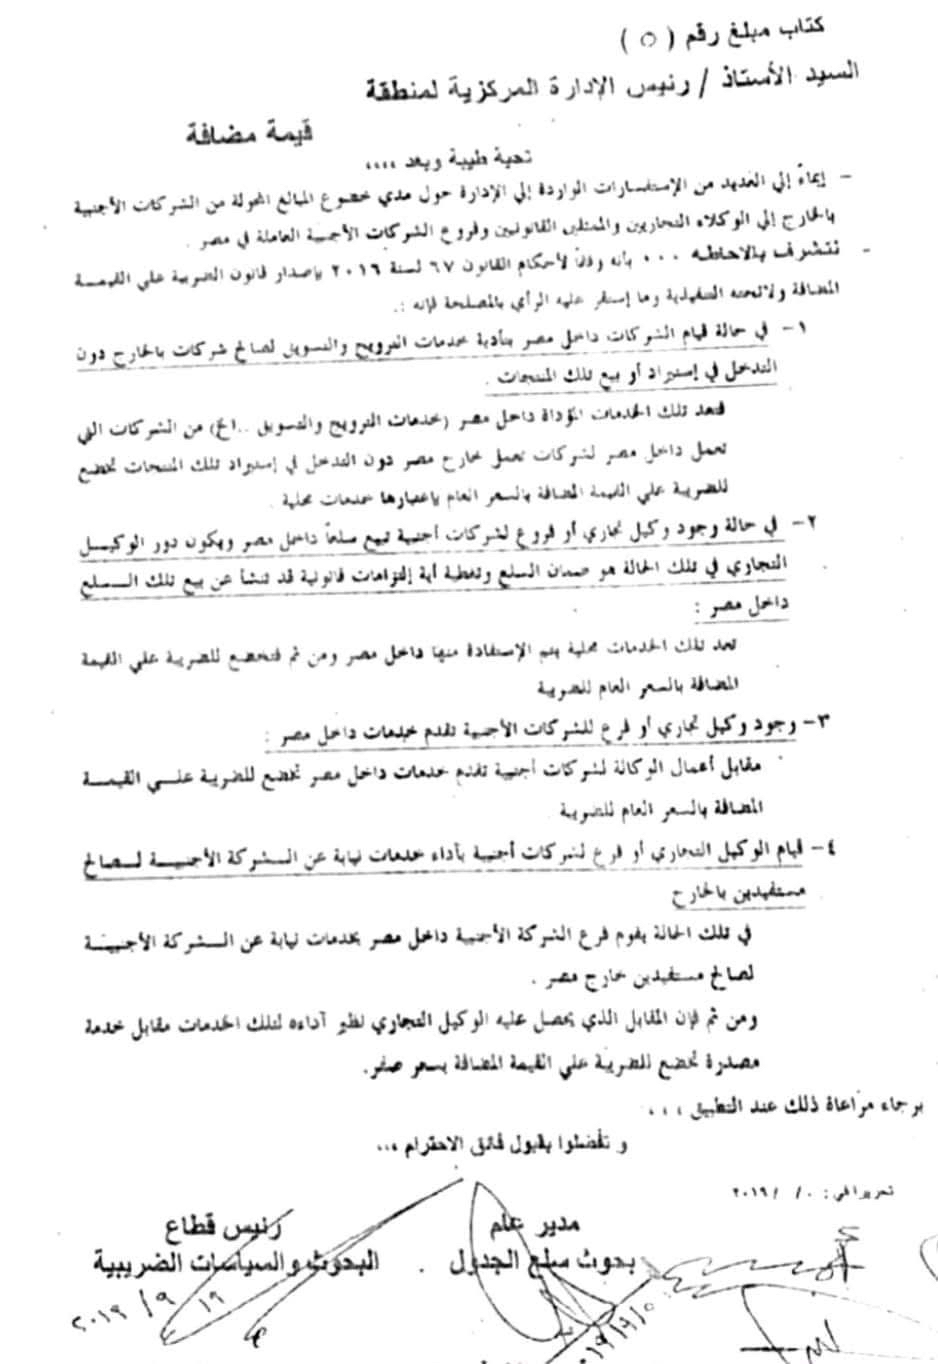 كتاب مبلغ رقم ( ٥ )
السيد الأستاذ / رئيس الإدارة المركزية لمنطقة
قيمة مضافة
تحية طيبة وبعد ،،،،
- إيماءً إلي العديد من الإستفسارات الواردة إلي الإدارة حول مدي خضوع المبالغ المحولة من الشركات الأجنبية
بالخارج إلي الوكلاء التجاريين والممثلين القانونيين وفروع الشركات الأجنبية العاملة في مصر .
- نتشرف بالاحاطه ٠٠٠ بأنه وفقاً لأحكام القانون ٦٧ لسنة ٢٠١٦ بإصدار قانون الضريبة علي القيمـــة
المضافة ولائحته التنفيذية وما إستقر عليه الرأي بالمصلحة فإنه :.
١- في حالة قيام الشركات داخل مصر بتأدية خدمات الترويج والتسويق لصالح شركات بالخارج دون
التدخل في إستيراد أو بيع تلك المنتجات .
فتعد تلك الخدمات المؤداة داخل مصر (خدمات الترويج والتسويق ..الخ) من الشركات التي
تعمل داخل مصر لشركات تعمل خارج مصر دون التدخل في إستيراد تلك المنتجات تخضع
للضريبة علي القيمة المضافة بالسعر العام بإعتبارها خدمات محلية .
٢- في حالة وجود وكيل تجاري أو فروع لشركات أجنبية تبيع سلعاً داخل مصر ويكون دور الوكيـــل
التجاري في تلك الحالة هو ضمان السلع وتغطية أية إلتزامات قانونية قد تنشأ عن بيع تلك الـــسلع
داخل مصر :
تعد تلك الخدمات محلية يتم الإستفادة منها داخل مصر ومن ثم فتخضع للضريبة علي القيمة
المضافة بالسعر العام للضريبة
٣- وجود وكيل تجاري أو فرع للشركات الأجنبية تقدم خدمات داخل مصر :
مقابل أعمال الوكالة لشركات أجنبية تقدم خدمات داخل مصر تخضع للضريبة علـــي القيمـــة
المضافة بالسعر العام للضريبة
٤- قيام الوكيل التجاري أو فرع لشركات أجنبية بأداء خدمات نيابة عن الــشركة الأجنبيـــة لـــصالح
مستفيدين بالخارج
في تلك الحالة يقوم فرع الشركة الأجنبية داخل مصر بخدمات نيابة عن الــشركة الأجنبيـــة
لصالح مستفيدين خارج مصر .
ومن ثم فإن المقابل الذي يحصل عليه الوكيل التجاري نظير آداءه لتلك الخدمات مقابل خدمة
مصدرة تخضع للضريبة علي القيمة المضافة بسعر صفر.
برجاء مراعاة ذلك عند التطبيق ،،،
و تفضلوا بقبول فائق الاحترام ،،،
تحريرا في : ٠ / / ٢٠١٩
مدير عام
بحوث سلع الجدول
رئيس قطاع
البحوث والسياسات الضريبية
١٩ / ٩ / ٢٠١٩